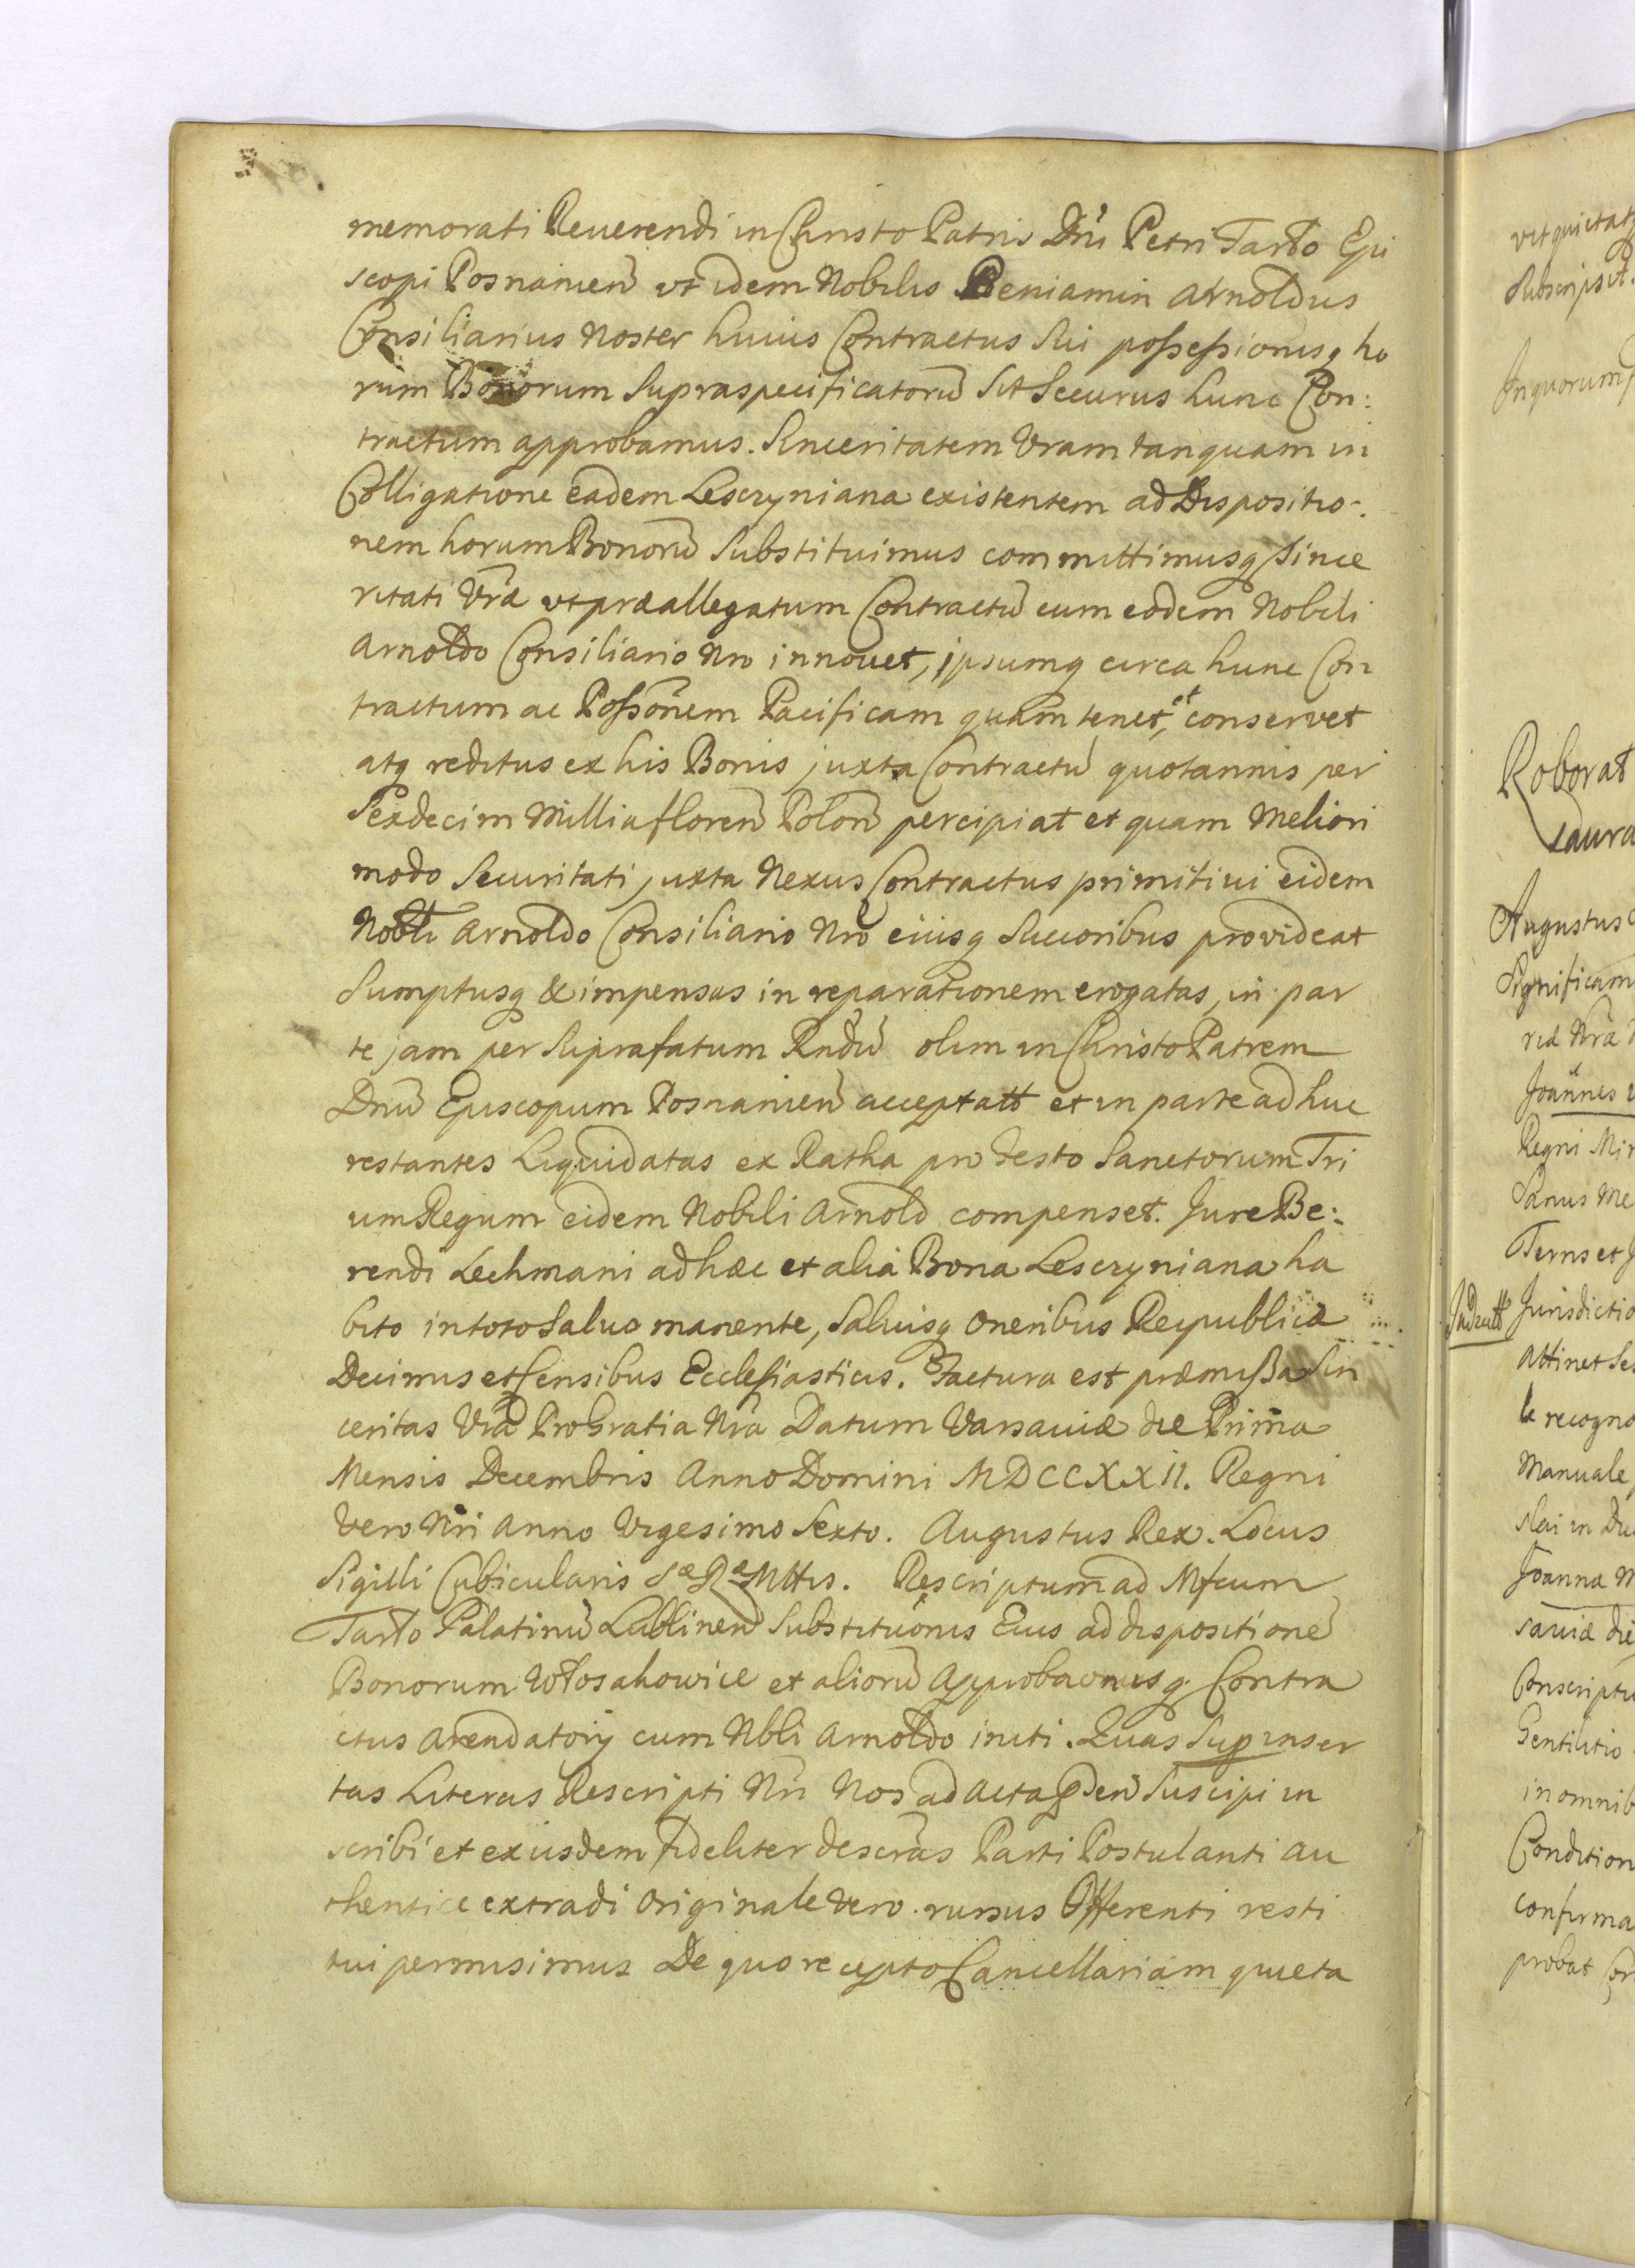 memorati Reuerendi in Christo Patris Dni Petri Tarło Epi
scopi Posnanien ut idem Nobilis Beniamin Arnoldus
Consiliarius Noster huius Contractus Sui possessionisq ho
rum Bonorum Supraspecificatorū Sit Securus hunc Con:
tractum approbamus. Sinceritatem Vram tanquam in
Colligatione eadem Lesczyniana existentem ad Dispositio-
nem horum Bonorū Substituimus committimusq Since
ritati Vræ ut præallegatum Contractū cum eodem Nobili
Arnoldo Consiliario Nro innovet, ipsumq circa hunc Con
tractum ac Possonem Pacificam quam tenet, et conservet
atq reditus ex his Bonis juxta Contractū quotannis per
Sexdecim Millia floren Polon percipiat et quam Meliori
modo Securitati juxta Nexus Contractus primitivi eidem
Nobli Arnoldo Consiliario Nro eiusq Succoribus provideat
Sumptusq & impensas in reparationem erogatas, in par
te jam per Suprafatum Rndū olim in Christo Patrem
Dnū Episcopum Posnanien acceptatt et in parte adhuc
restantes Liquidatas ex Ratha pro Festo Sanctorum Tri
um Regum eidem Nobili Arnold compenset. Jure Be:
rendi Lechmani ad hæc et alia Bona Lesczyniana ha
bito in toto Saluo manente, Saluisq Oneribus Reipublicæ
Decimis et Censibus Ecclesiasticis. Factura est præmissa Sin
ceritas Vra Pro Gratia Nra Datum Varsauiæ die Prima
Mensis Decembris Anno Domini MDCCXXII. Regni
Vero Nri Anno Vigesimo Sexto. Augustus Rex. Locus
Sigilli Cubicularis Sæ Ræ Mttis. Rescriptum ad Mfcum
Tarło Palatinū Lublinen Substituonis Eius ad dispositionē
Bonorum Włosakowice et aliorū Approbaonisq Contra
ctus Arendatorij cum Nbli Arnoldo initi. Quas Sup inser
tas Literas Rescripti Nri Nos ad Acta Suscipi in
scribi et exiisdem fideliter descras Parti Postulanti au
thentice extradi Originale vero rursus Offerenti resti
tui permisimus De quo recepto Cancellariam quieta
vit quietat
Subscripsit.
In quorum f
Roborat
Laura
Augustus
Significam
Joannes
Regni Mi
Sanus Me
Terris et J
Jurisdictio
Attinet Se
le recogno
Manuale
Joanna M
sauiæ die
Conscriptu
Gentilitio
in omnib
Condition
confirma
probat Con